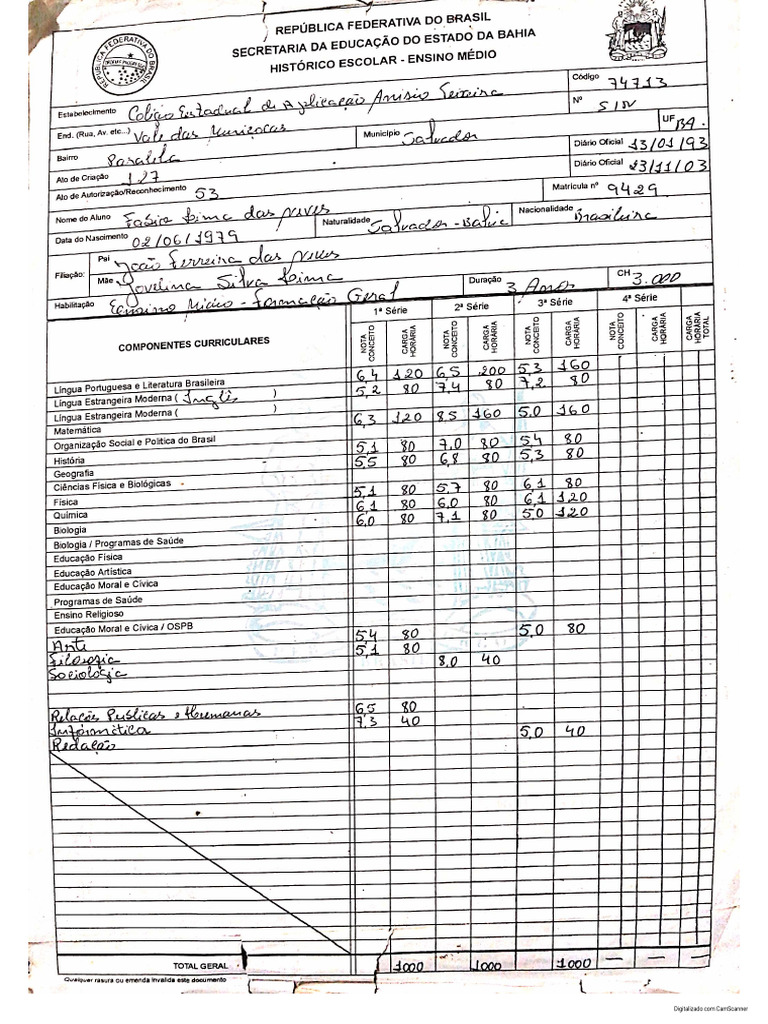 REPÚBLICA FEDERATIVA DO BRASIL
SECRETARIA DA EDUCAÇÃO DO ESTADO DA BAHIA
HISTÓRICO ESCOLAR - ENSINO MÉDIO
REPÚBLICA FEDERATIVA DO BRASIL
Estabelecimento Colégio Estadual de Aplicação Anísio Teixeira Código 74713
End. (Rua, Av. etc...) Vale das Muriçocas Nº S/N
Bairro Paralela Município Salvador UF BA.
Ato de Criação 127 Diário Oficial 13/01/93
Ato de Autorização/Reconhecimento 53 Diário Oficial 13/11/03
Nome do Aluno Lima das Neves Matrícula nº 9429
Data do Nascimento 02/06/1979 Naturalidade Salvador - Bahia Nacionalidade Brasileira
Filiação: Pai João Ferreira das Neves
Mãe Jovelina Silva Lima
Habilitação Ensino Médio - Formação Geral Duração 3 Anos CH 3.000
COMPONENTES CURRICULARES 1ª Série 2ª Série 3ª Série 4ª Série
NOTA CONCEITO CARGA HORÁRIA NOTA CONCEITO CARGA HORÁRIA NOTA CONCEITO CARGA HORÁRIA NOTA CONCEITO CARGA HORÁRIA CARGA HORÁRIA TOTAL
Língua Portuguesa e Literatura Brasileira 6,4 120 6,5 200 5,3 160
Língua Estrangeira Moderna ( Inglês ) 5,2 80 7,4 80 7,2 80
Língua Estrangeira Moderna ( )
Matemática 6,3 120 8,5 160 5,0 160
Organização Social e Politica do Brasil
História 5,1 80 7,0 80 5,4 80
Geografia 5,5 80 6,8 80 5,3 80
Ciências Física e Biológicas
Física 5,1 80 5,7 80 6,1 80
Química 6,1 80 6,0 80 6,1 120
Biologia 6,0 80 7,1 80 5,0 120
Biologia / Programas de Saúde
Educação Física
Educação Artística
Educação Moral e Cívica
Programas de Saúde
Ensino Religioso
Educação Moral e Cívica / OSPB
Arti 5,4 80 5,0 80
Filosofia 5,1 80
Sociologia 8,0 40
Relações Públicas e Humanas 6,5 80
Informática 7,3 40
Redação 5,0 40
TOTAL GERAL 1000 1000 1000 — — —
Qualquer rasura ou emenda invalida este documento
Digitalizado com CamScanner